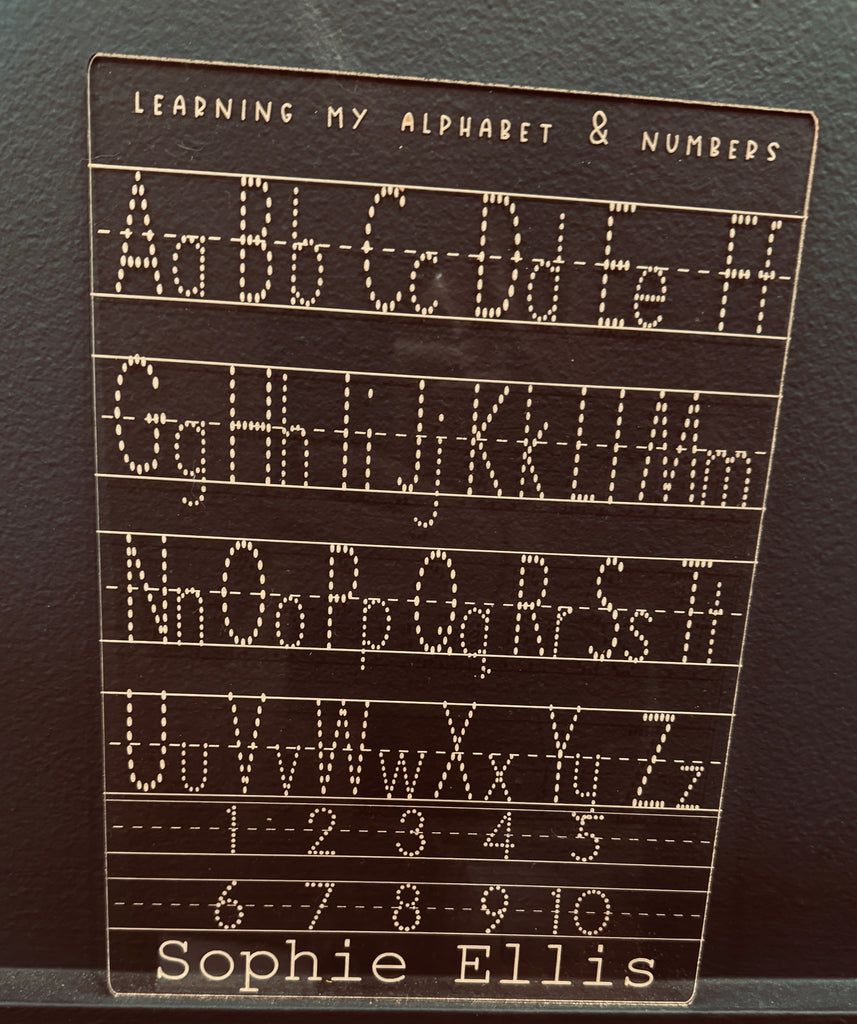 LEARNING MY ALPHABET & NUMBERS
Aa Bb Cc Dd Ee Ff
Gg Hh Ii Jj Kk Ll Mm
Nn Oo Pp Qq Rr Ss Tt
Uu Vv Ww Xx Yy Zz
1 2 3 4 5
6 7 8 9 10
Sophie Ellis